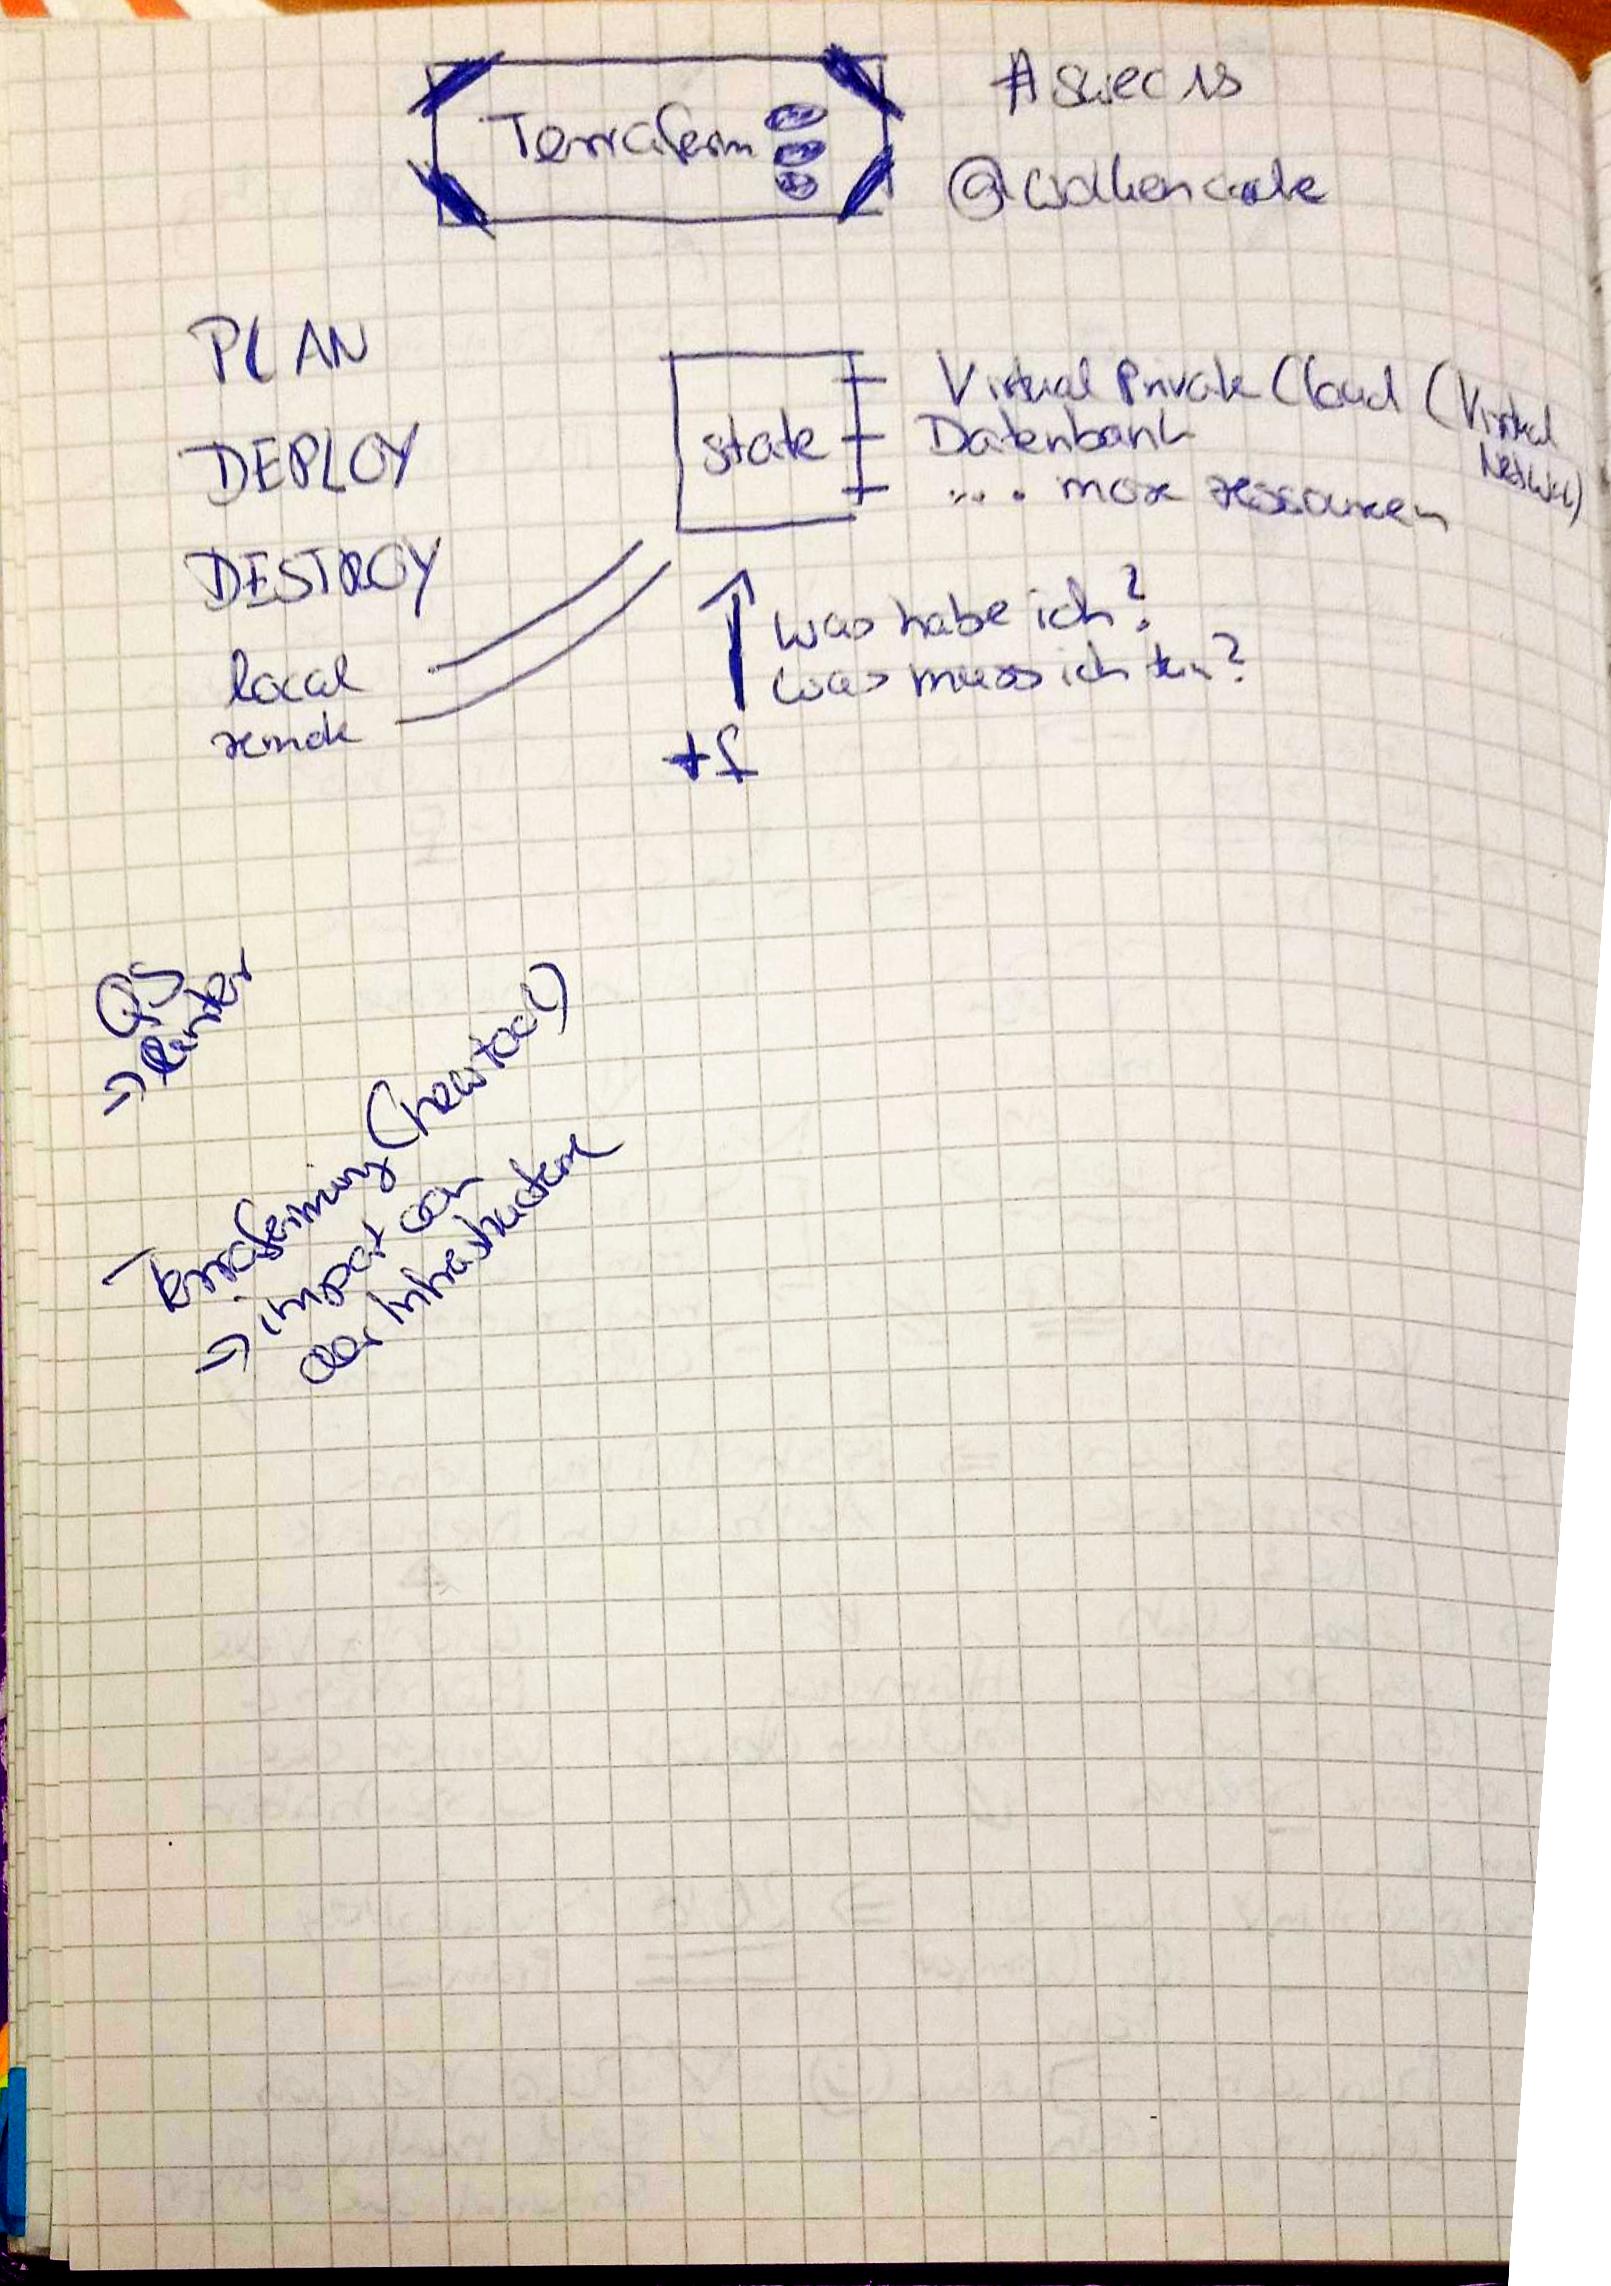 Terraform
#swec18
@wolkencode
PLAN
DEPLOY
DESTROY
local
remote
state
Virtual Private Cloud (Virtual Network)
Datenbank
.... more ressourcen
was habe ich?
was muss ich tun?
tf
QS
→ linter
Terraforming (new tool)
→ import von
der Infrastruktur